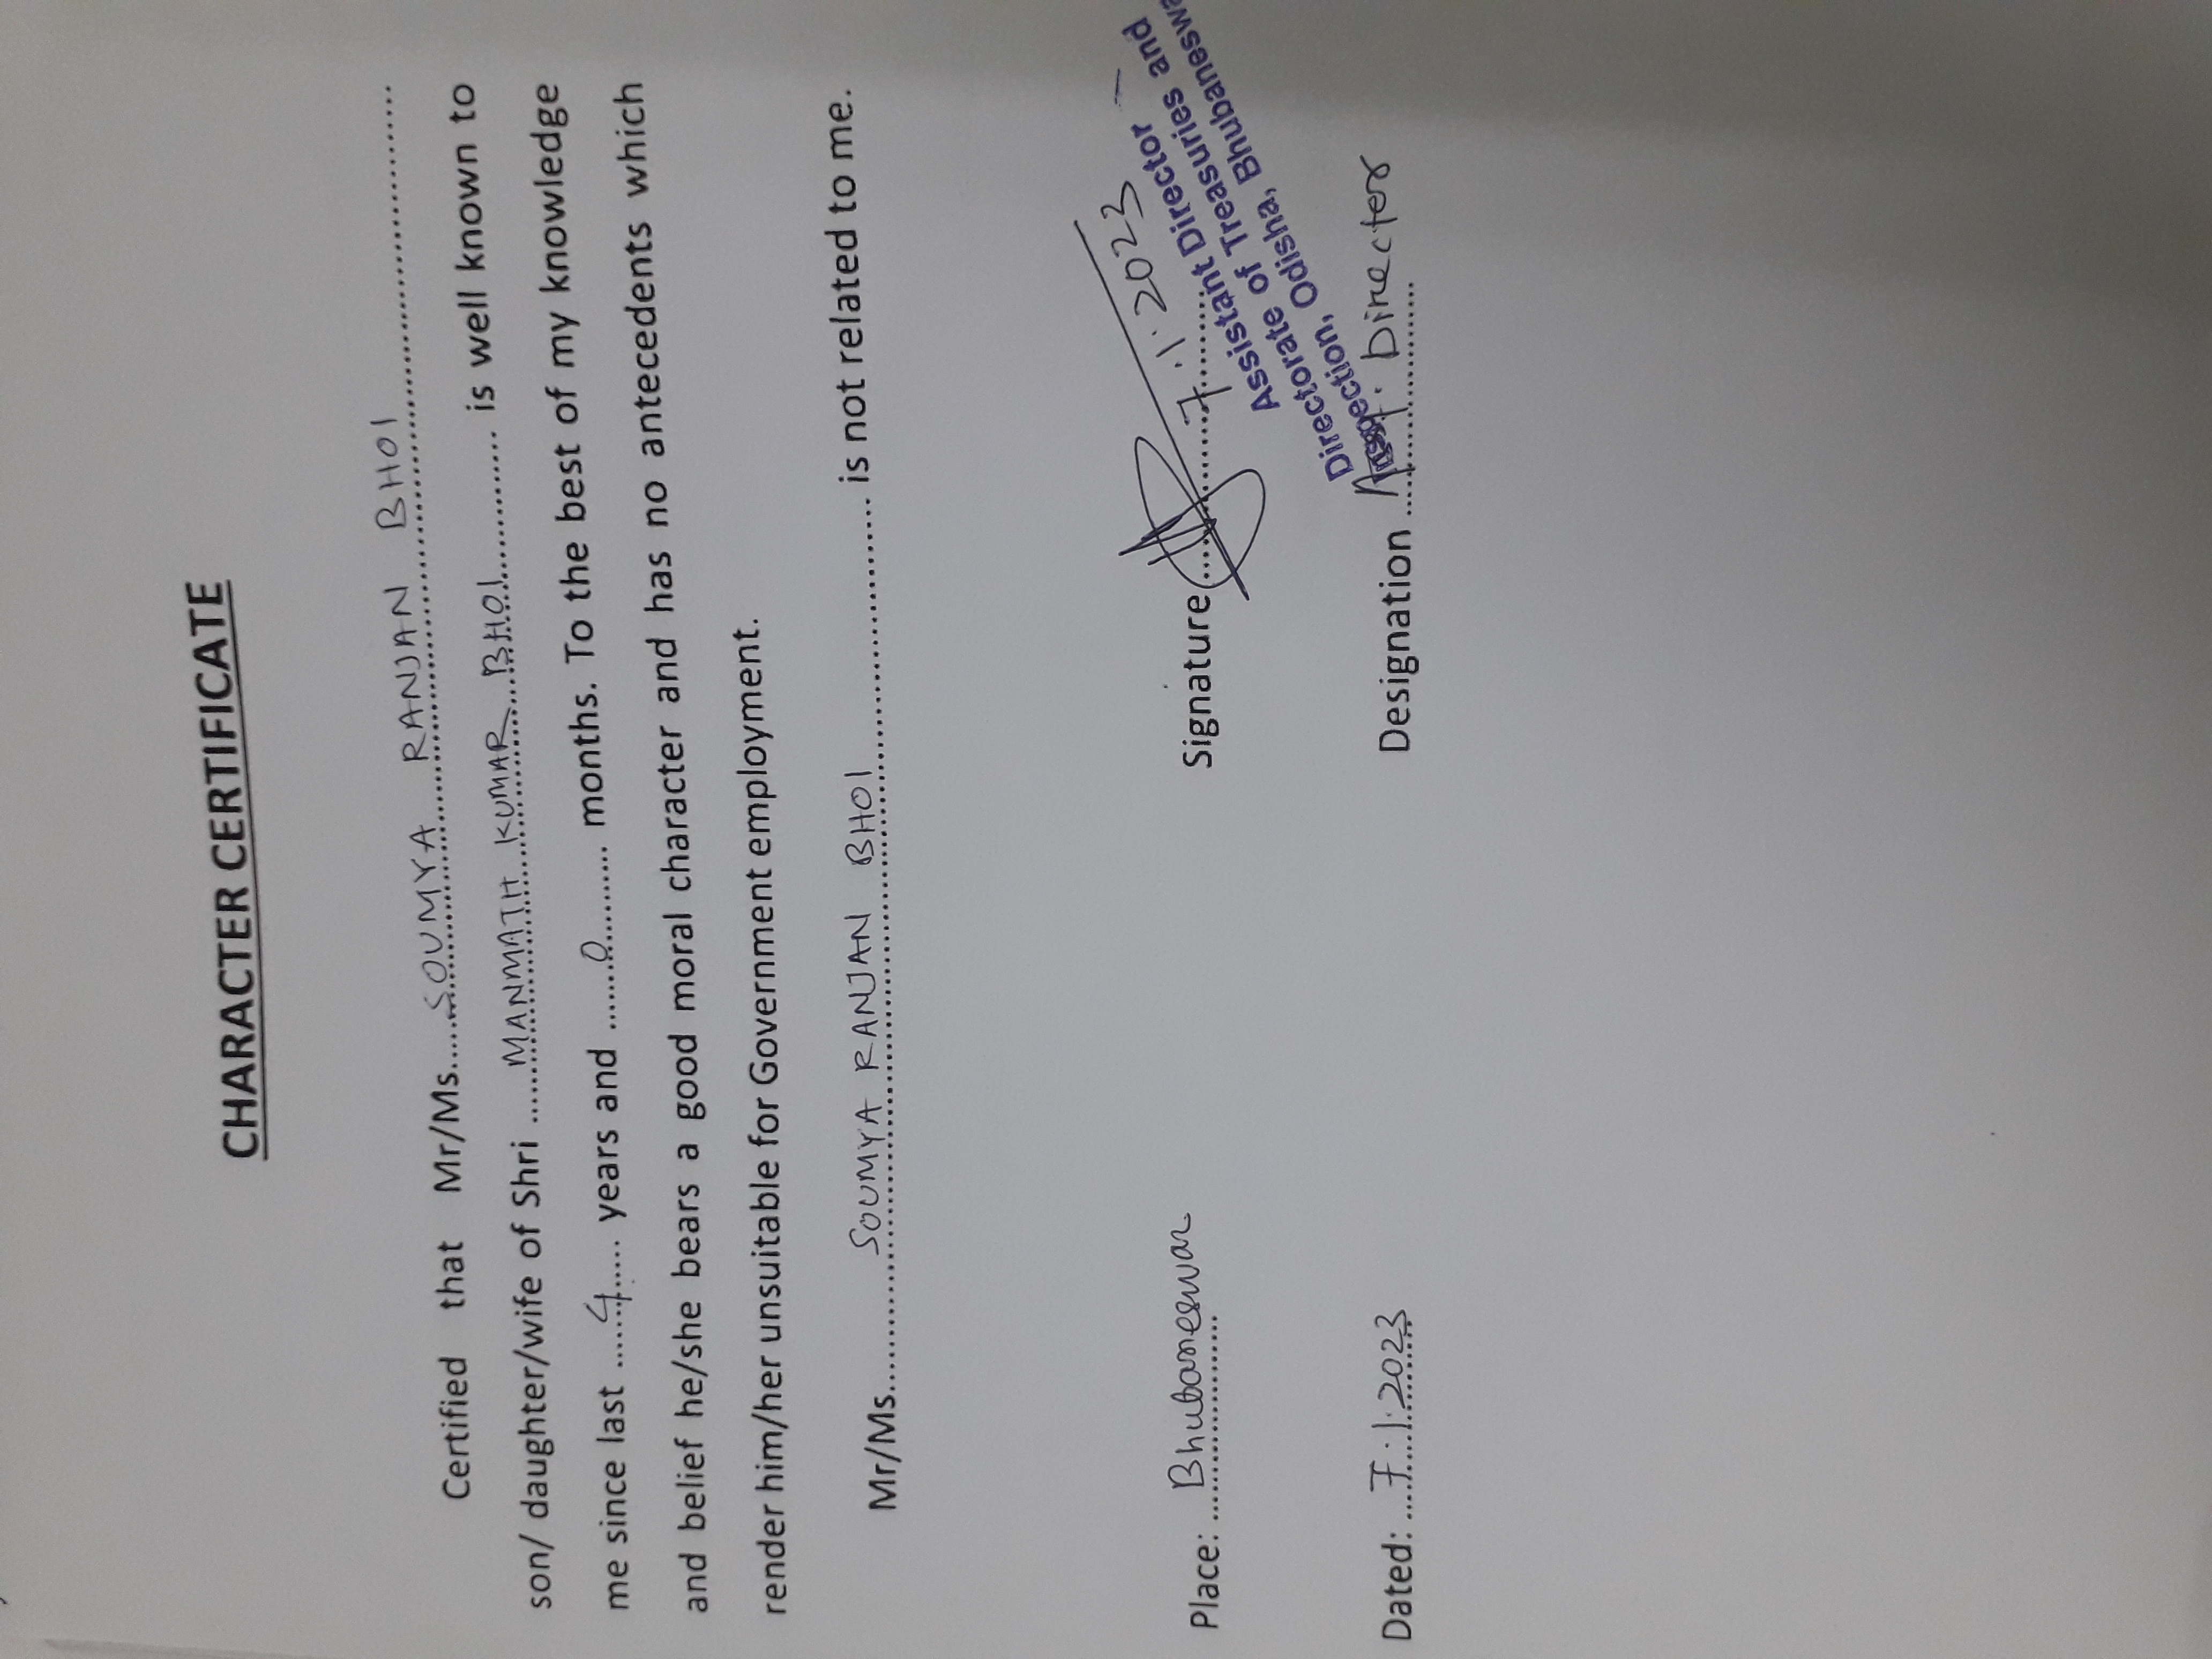 CHARACTER CERTIFICATE
Certified that Mr/Ms.....SOUMYA RANJAN BHOI..............................
son/ daughter/wife of Shri ......MANMATH KUMAR BHOI............... is well known to
me since last .......4..... years and .......0.......... months. To the best of my knowledge
and belief he/she bears a good moral character and has no antecedents which
render him/her unsuitable for Government employment.
Mr/Ms............SOUMYA RANJAN BHOI........................... is not related to me.
Place: Bhubaneswar
Signature 7.1.2023
Assistant Director
Directorate of Treasuries and
Inspection, Odisha, Bhubaneswa
Dated: 7.1.2023
Designation Asst. Director